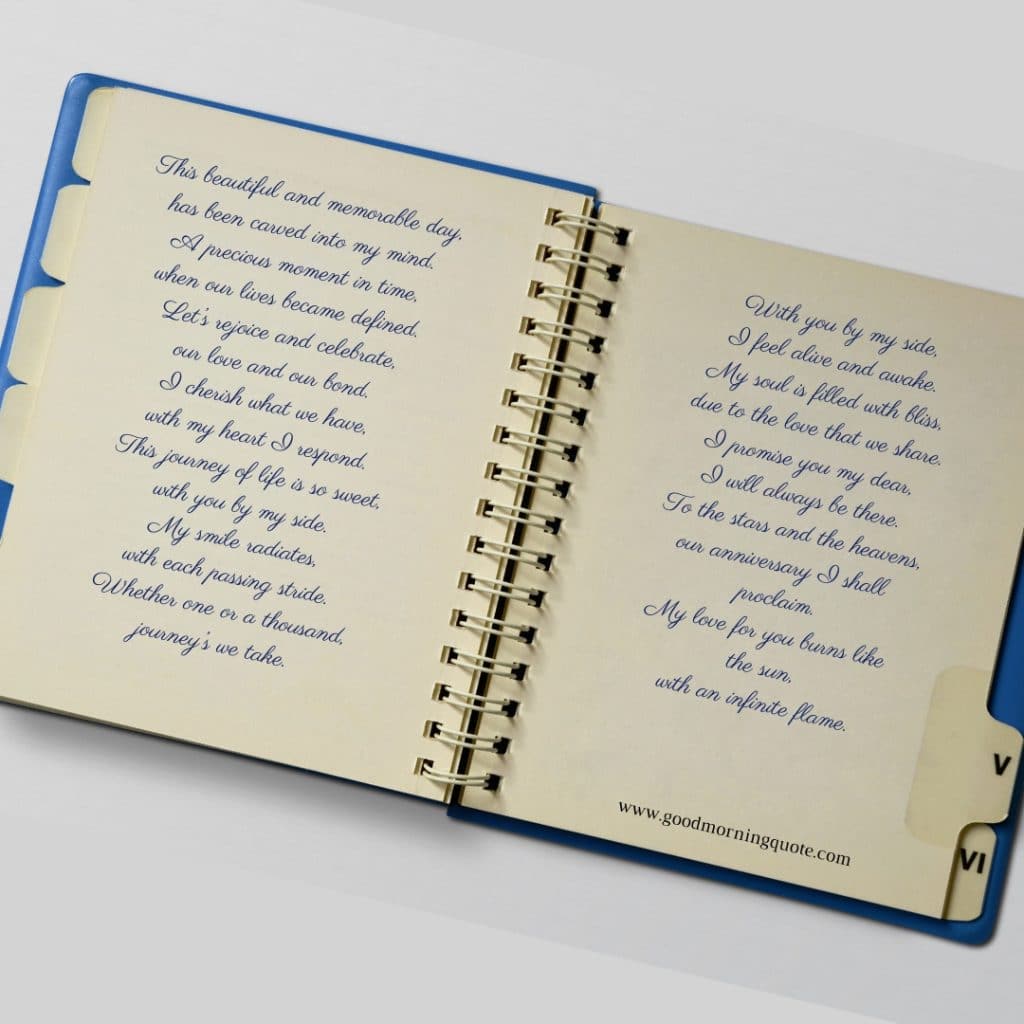 This beautiful and memorable day,
has been carved into my mind.
A precious moment in time,
when our lives became defined.
Let's rejoice and celebrate,
our love and our bond.
I cherish what we have,
with my heart I respond.
This journey of life is so sweet,
with you by my side.
My smile radiates,
with each passing stride.
Whether one or a thousand,
journey's we take.
With you by my side,
I feel alive and awake.
My soul is filled with bliss,
due to the love that we share.
I promise you my dear,
I will always be there.
To the stars and the heavens,
our anniversary I shall
proclaim.
My love for you burns like
the sun,
with an infinite flame.
www.goodmorningquote.com
V
VI